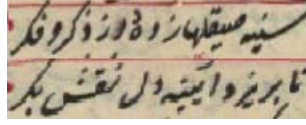 سینه صیقلها زده در ذکر و فکر
تا پریزد آیینه دل نقش بکر